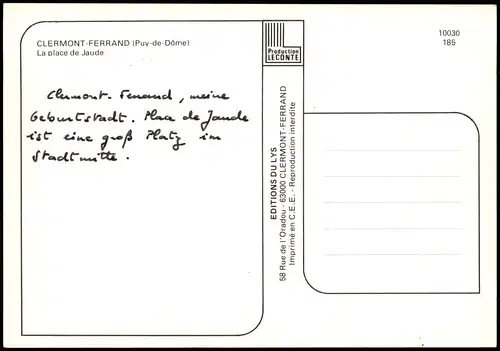 CLERMONT-FERRAND (Puy-de-Dôme)
La place de Jaude
Clermont-Ferrand, meine
Geburtstadt. Place de Jaude
ist eine groß Platz im
Stadtmitte.
Production
LECONTE
10030
185
EDITIONS DU LYS
58 Rue de l'Oradou - 63000 CLERMONT-FERRAND
Imprimé en C.E.E. - Reproduction interdite